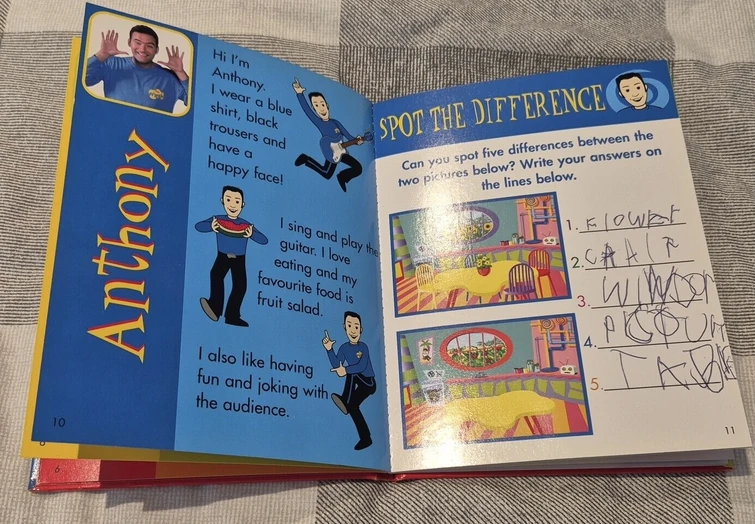 Anthony
Hi I'm
Anthony.
I wear a blue
shirt, black
trousers and
have a
happy face!
I sing and play the
guitar. I love
eating and my
favourite food is
fruit salad.
I also like having
fun and joking with
the audience.
10
6
SPOT THE DIFFERENCE
Can you spot five differences between the
two pictures below? Write your answers on
the lines below.
1. FlOWER
2. CHAIR
3.
4.
5.
11